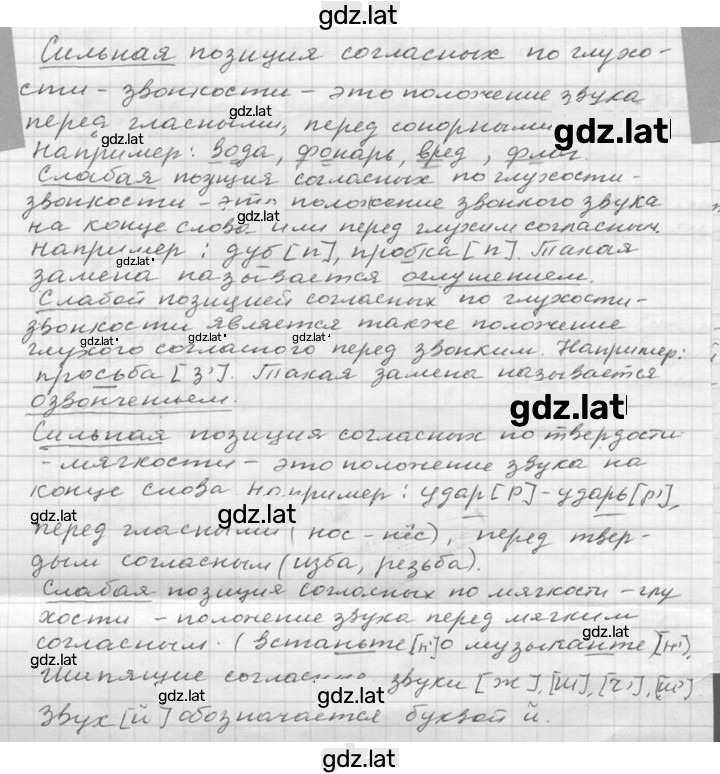 gdz.lat
Сильная позиция согласных по глухо-
сти - звонкости - это положение звука
gdz.lat
перед гласными, перед сонорными
gdz.lat gdz.lat
Например: вода, фонарь, вред, флаг.
Слабая позиция согласных по глухости-
звонкости - это положение звонкого звука
на конце слова или перед глухим согласным.
Например: дуб [п], пробка [п]. Такая
gdz.lat
замена называется оглушением.
Слабой позицией согласных по глухости-
звонкости является также положение
gdz.lat gdz.lat gdz.lat
глухого согласного перед звонким. Например:
просьба [з']. Такая замена называется
озвончением.
gdz.lat
Сильная позиция согласных по твердости
- мягкости - это положение звука на
конце слова например: удар [р] - ударь [р'],
gdz.lat gdz.lat
перед гласными (нос - нёс), перед твер-
дым согласным (изба, резьба).
gdz.lat
Слабая позиция согласных по мягкости - глу
хости - положение звука перед мягким
gdz.lat
согласным. (встаньте [н'] о музыканте) [н'].
gdz.lat
Шипящие звуки [ж], [ш], [ч'], [щ']
gdz.lat gdz.lat
Звук [й] обозначается буквой й.
gdz.lat